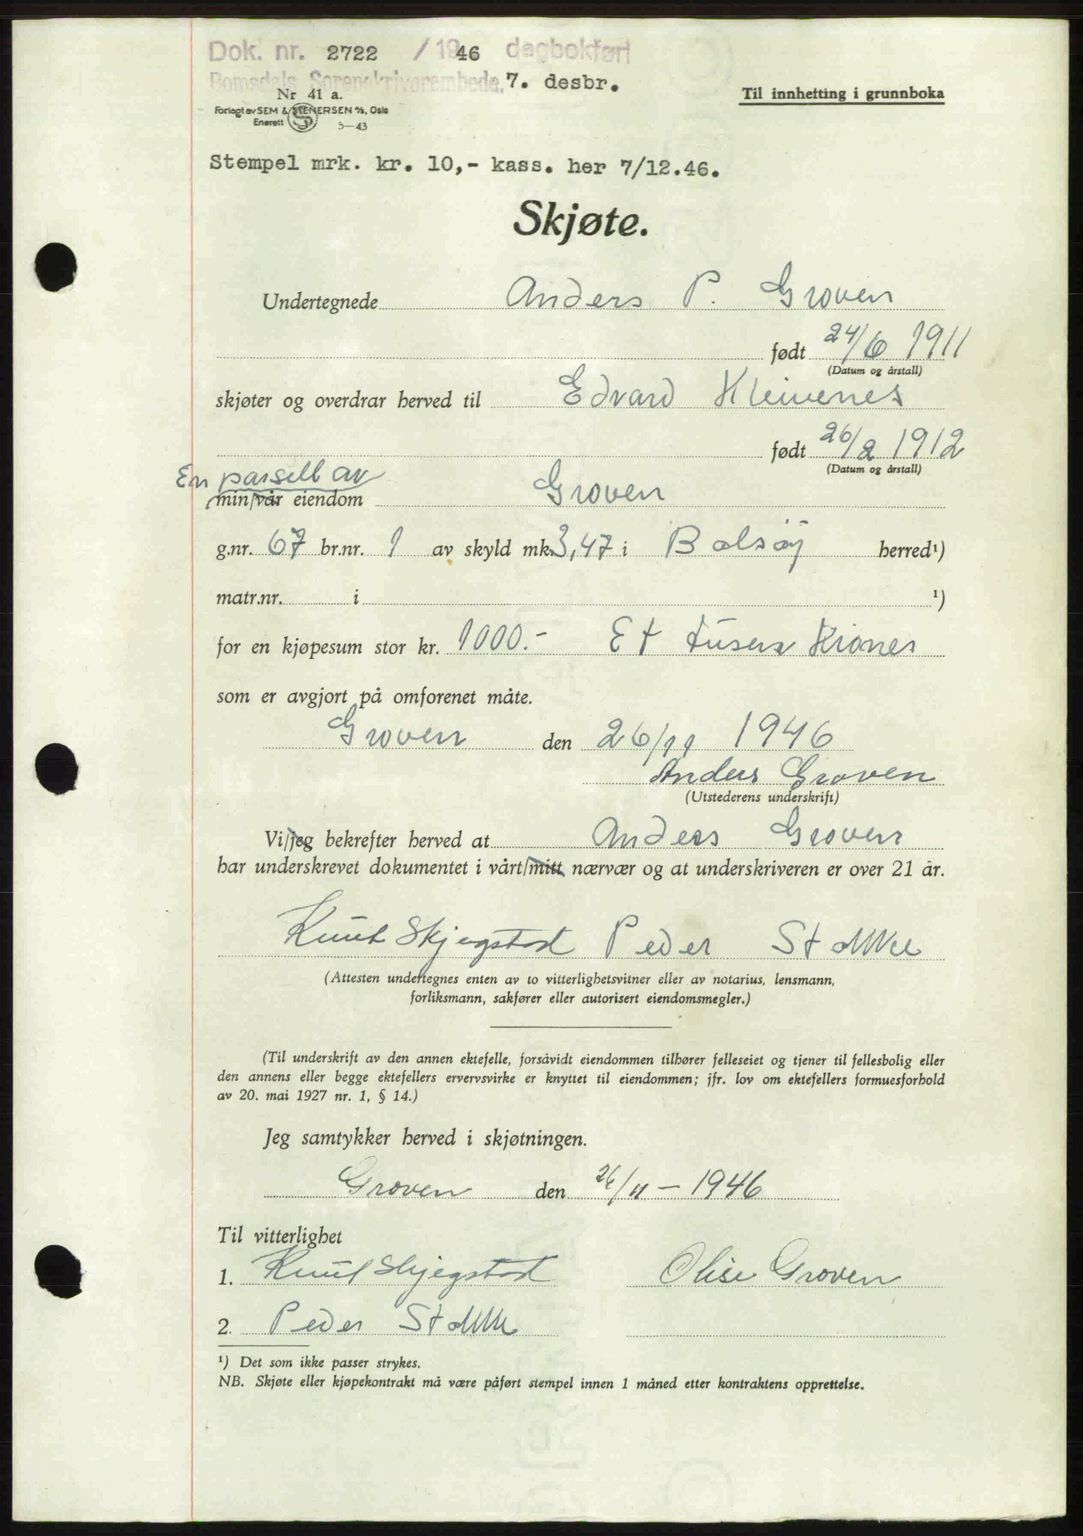 Dok. nr. 2722 / 1946 dagbokført
Romsdals Sorenskriverembede, 7. desbr.
Nr 41 a.
Forlagt av SEM & STENERSEN A/S, Oslo
Enerett
5—43
Til innhefting i grunnboka
Stempel mrk. kr. 10,- kass. her 7/12.46.
Skjøte.
Undertegnede Anders P. Groven
født 24/6 1911
(Datum og årstall)
skjøter og overdrar herved til Edvard Kleivenes
født 26/2 1912
(Datum og årstall)
En parsell av
min/vår eiendom Groven
g.nr. 67 br.nr. 1 av skyld mk. 3,47 i Bolsøy herred¹)
matr.nr. i ¹)
for en kjøpesum stor kr. 1000.- Et tusen Kroner
som er avgjort på omforenet måte.
Groven den 26/11 1946
Anders Groven
(Utstederens underskrift)
Vi/jeg bekrefter herved at Anders Groven
har underskrevet dokumentet i vårt/mitt nærvær og at underskriveren er over 21 år.
Knut Skjegstad Peder Stokke
(Attesten undertegnes enten av to vitterlighetsvitner eller av notarius, lensmann,
forliksmann, sakfører eller autorisert eiendomsmegler.)
(Til underskrift av den annen ektefelle, forsåvidt eiendommen tilhører felleseiet og tjener til fellesbolig eller
den annens eller begge ektefellers ervervsvirke er knyttet til eiendommen; jfr. lov om ektefellers formuesforhold
av 20. mai 1927 nr. 1, § 14.)
Jeg samtykker herved i skjøtningen.
Groven den 26/11 - 1946
Til vitterlighet
1. Knut Skjegstad Olise Groven
2. Peder Stokke
¹) Det som ikke passer strykes.
NB. Skjøte eller kjøpekontrakt må være påført stempel innen 1 måned etter kontraktens opprettelse.